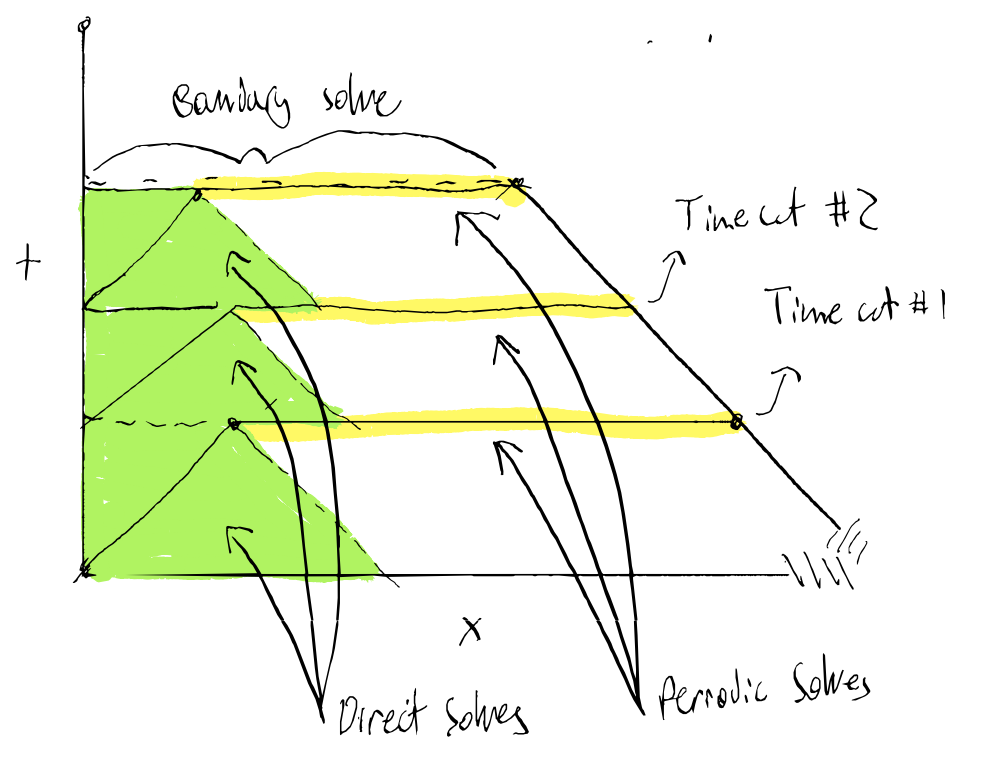 Boundary solve
Time cut #2
t
Time cut #1
x
Direct Solves
Periodic Solves